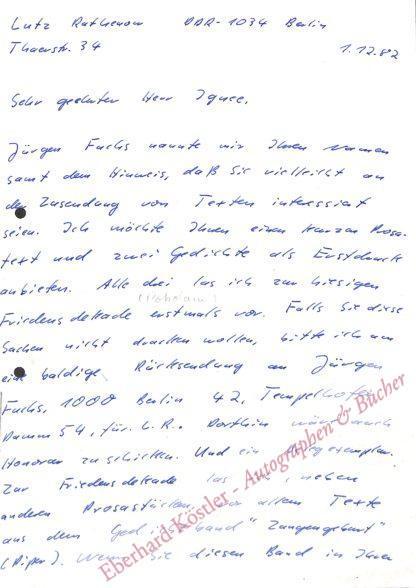 Lutz Rathenow DDR-1034 Berlin
Thaerstr. 34 1.12.82
Sehr geehrter Herr Ignee,
Jürgen Fuchs nannte mir Ihren Namen
samt dem Hinweis, daß Sie vielleicht an
der Zusendung von Texten interessiert
seien. Ich möchte Ihnen einen kurzen Prosa-
text und zwei Gedichte als Erstdruck
anbieten. Alle drei las ich zur hiesigen
Friedensdekade erstmals vor. Falls Sie diese
Sachen nicht drucken wollen, bitte ich um
eine baldige Rücksendung an Jürgen
Fuchs, 1000 Berlin 42, Tempelhofer
Damm 54, für L.R. Dorthin wäre auch
Honorar zu schicken. Und ein Belegexemplar.
Zur Friedensdekade las ich, neben
anderen Prosastücken, vor allem Texte
aus dem Gedichtband "Zangengeburt"
(Piper). Wenn Sie diesen Band in Ihrer
Eberhard Köstler - Autographen & Bücher